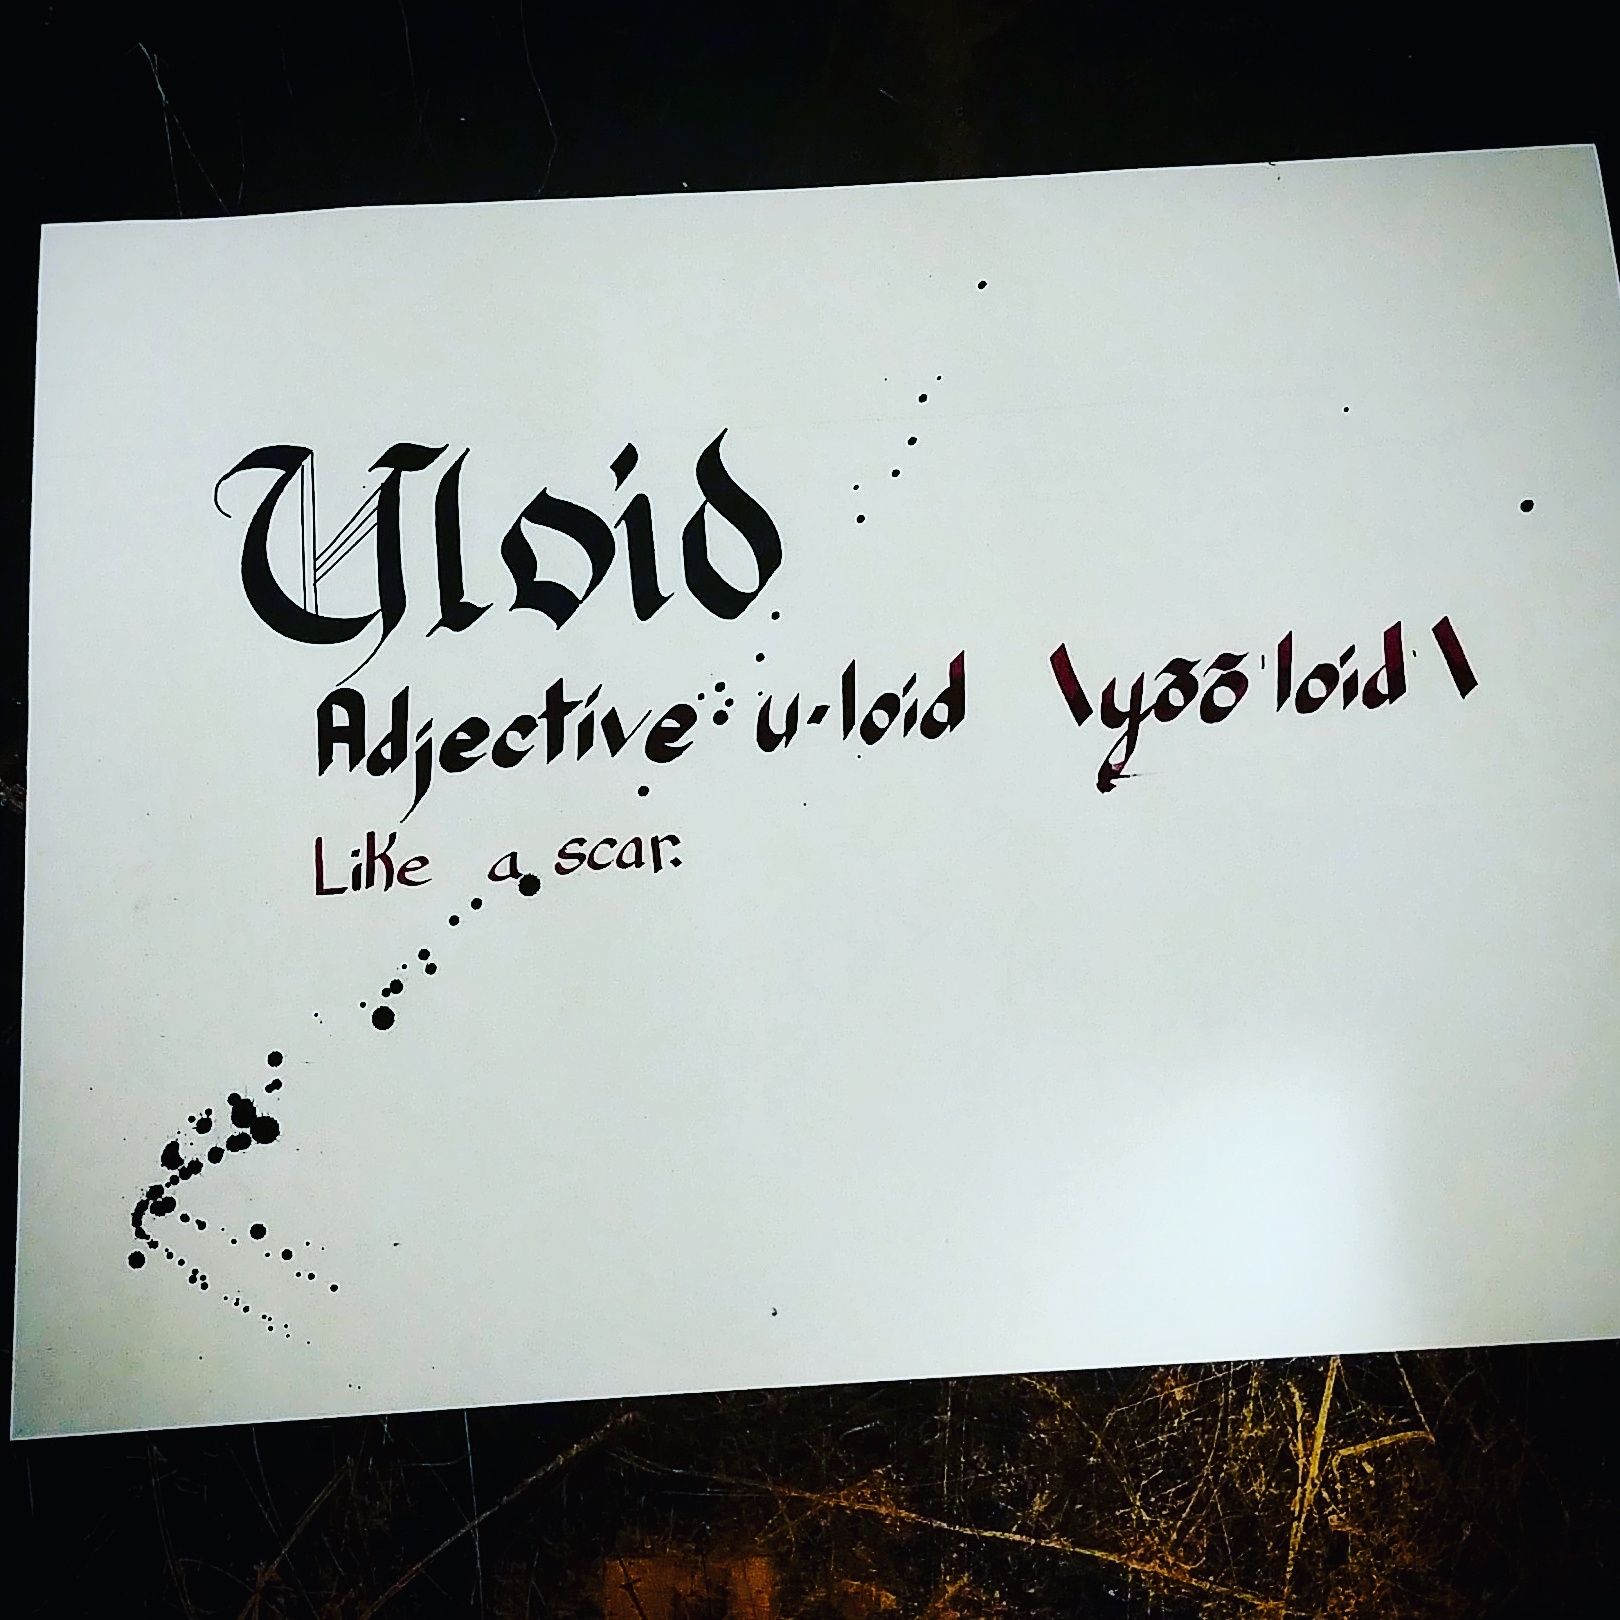 Uloid
Adjective: u-loid \yȣȣ'loid'\
Like a scar.